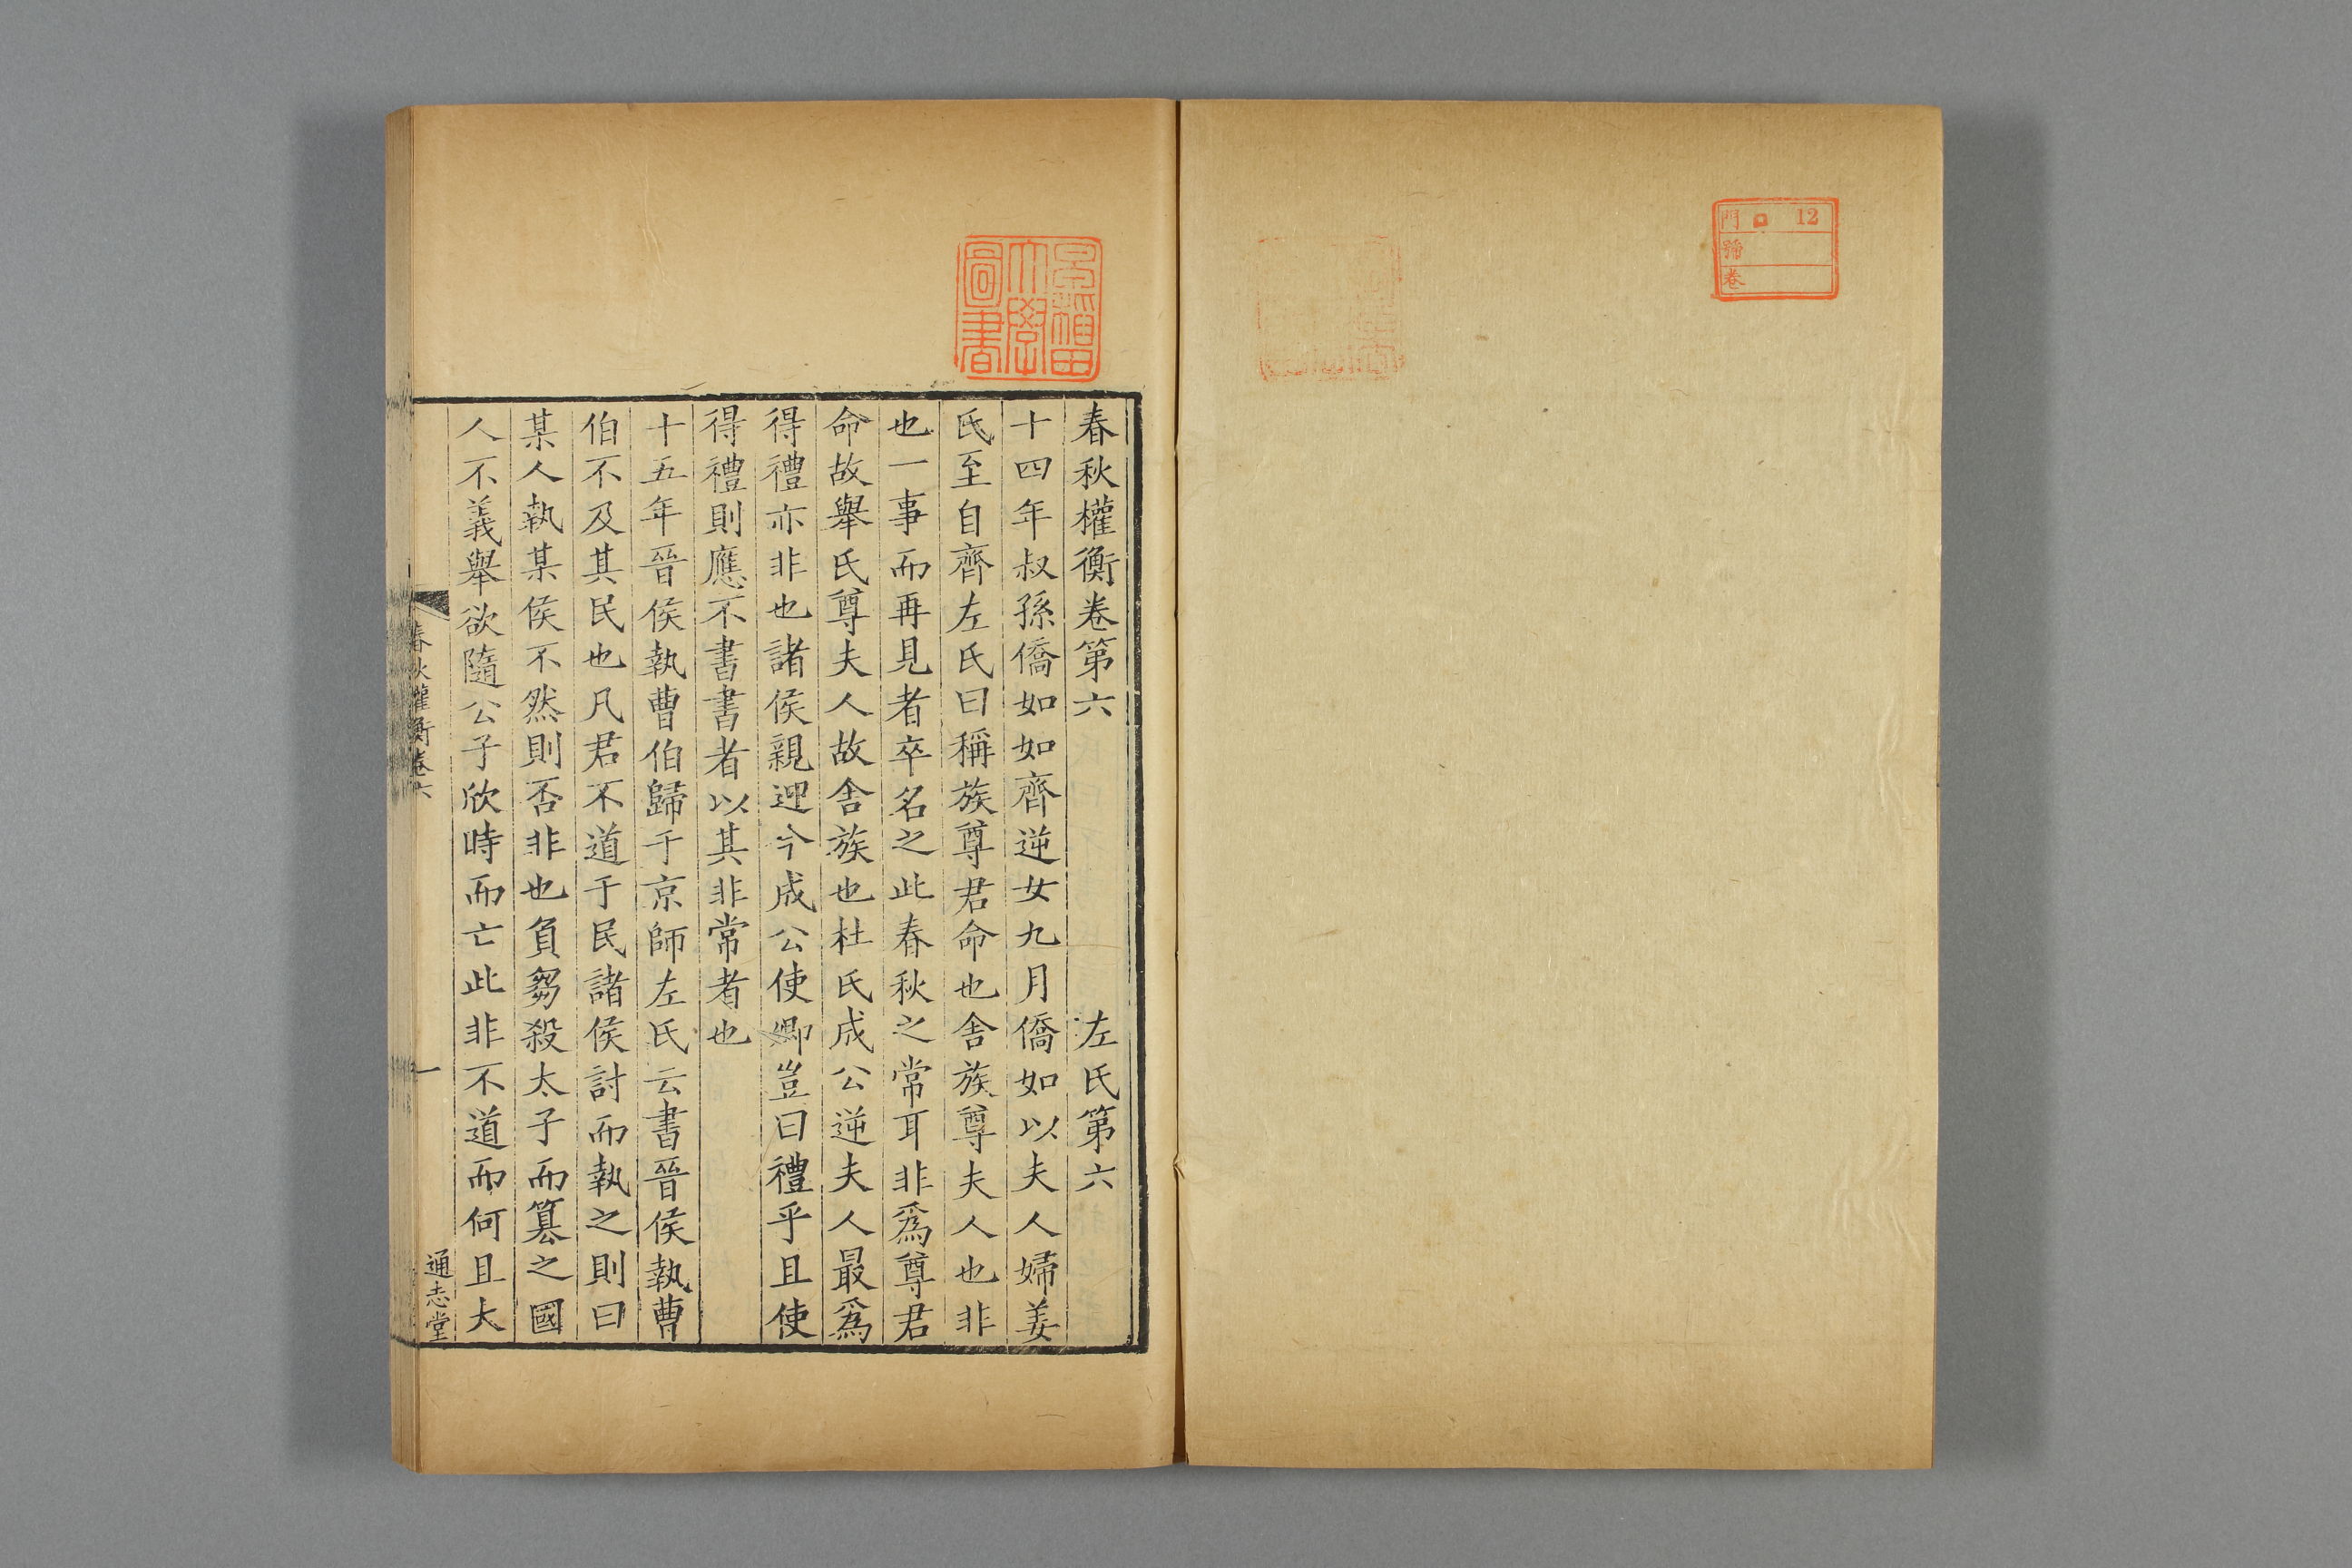 門 口 12
號
卷
早稻田
大學
圖書
春秋權衡卷第六 左氏第六
十四年叔孫僑如如齊逆女九月僑如以夫人婦姜
氏至自齊左氏曰稱族尊君命也舍族尊夫人也非
也一事而再見者卒名之此春秋之常耳非爲尊君
命故舉氏尊夫人故舍族也杜氏成公逆夫人最爲
得禮亦非也諸侯親迎今成公使卿豈曰禮乎且使
得禮則應不書書者以其非常者也
十五年晉侯執曹伯歸于京師左氏云書晉侯執曹
伯不及其民也凡君不道于民諸侯討而執之則曰
某人執某侯不然則否非也負芻殺太子而簒之國
人不義舉欲隨公子欣時而亡此非不道而何且夫
春秋權衡卷六
一
通志堂